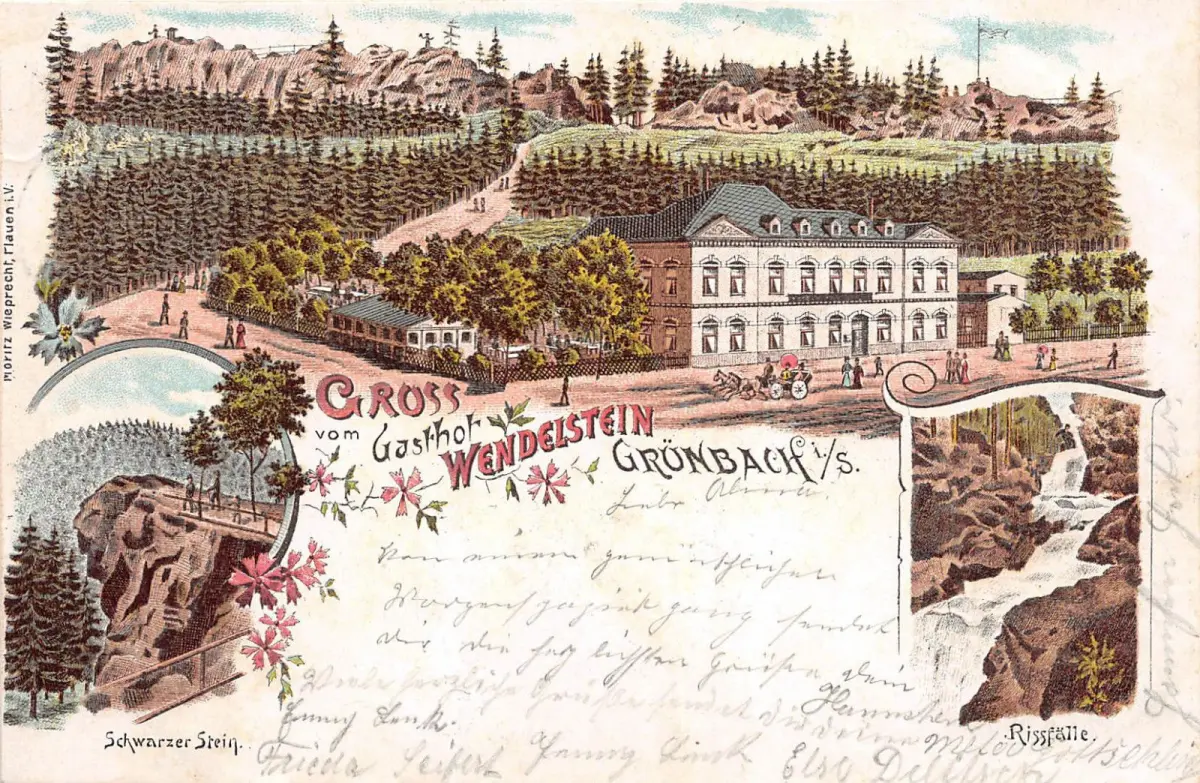 Moritz Wieprecht, Plauen i.V.
GROSS
vom Gasthof
WENDELSTEIN
GRÜNBACH i/S.
Liebe Alma.
Von einem gemüthlichen
Morgenspaziergang sendet
dir die herzlichsten Grüße dein
Hannchen
Viele herzliche Grüße sendet dir deine
Fanny Lenk.
Frieda Seifert Fanny Linck Else
Schwarzer Stein.
Rissfälle.